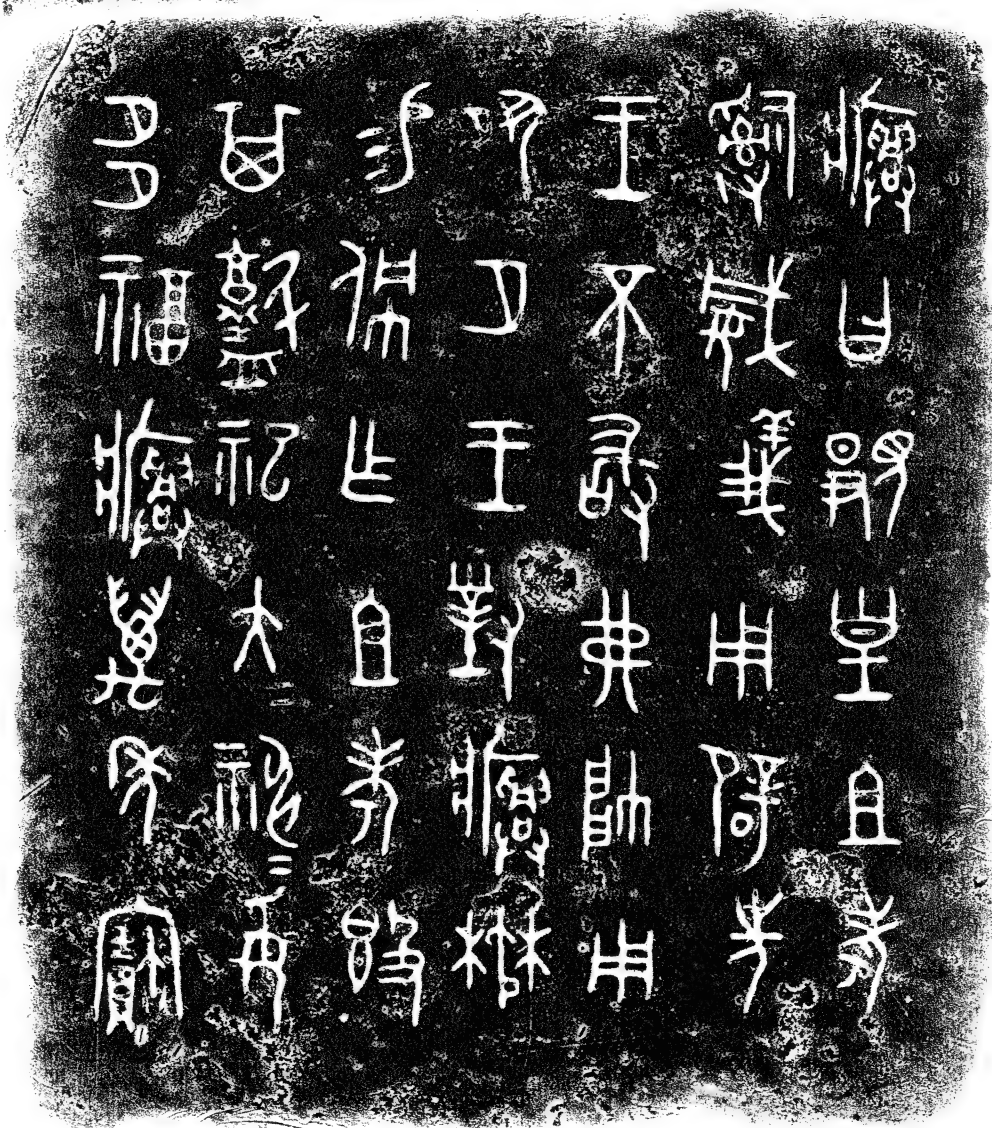 𤼈曰覭皇且考
𤔲威義用辟先
王不敢弗帥用
夙夕王對𤼈楙
易佩乍且考𣪘
其祀大=神=妥
多福𤼈萬年寶